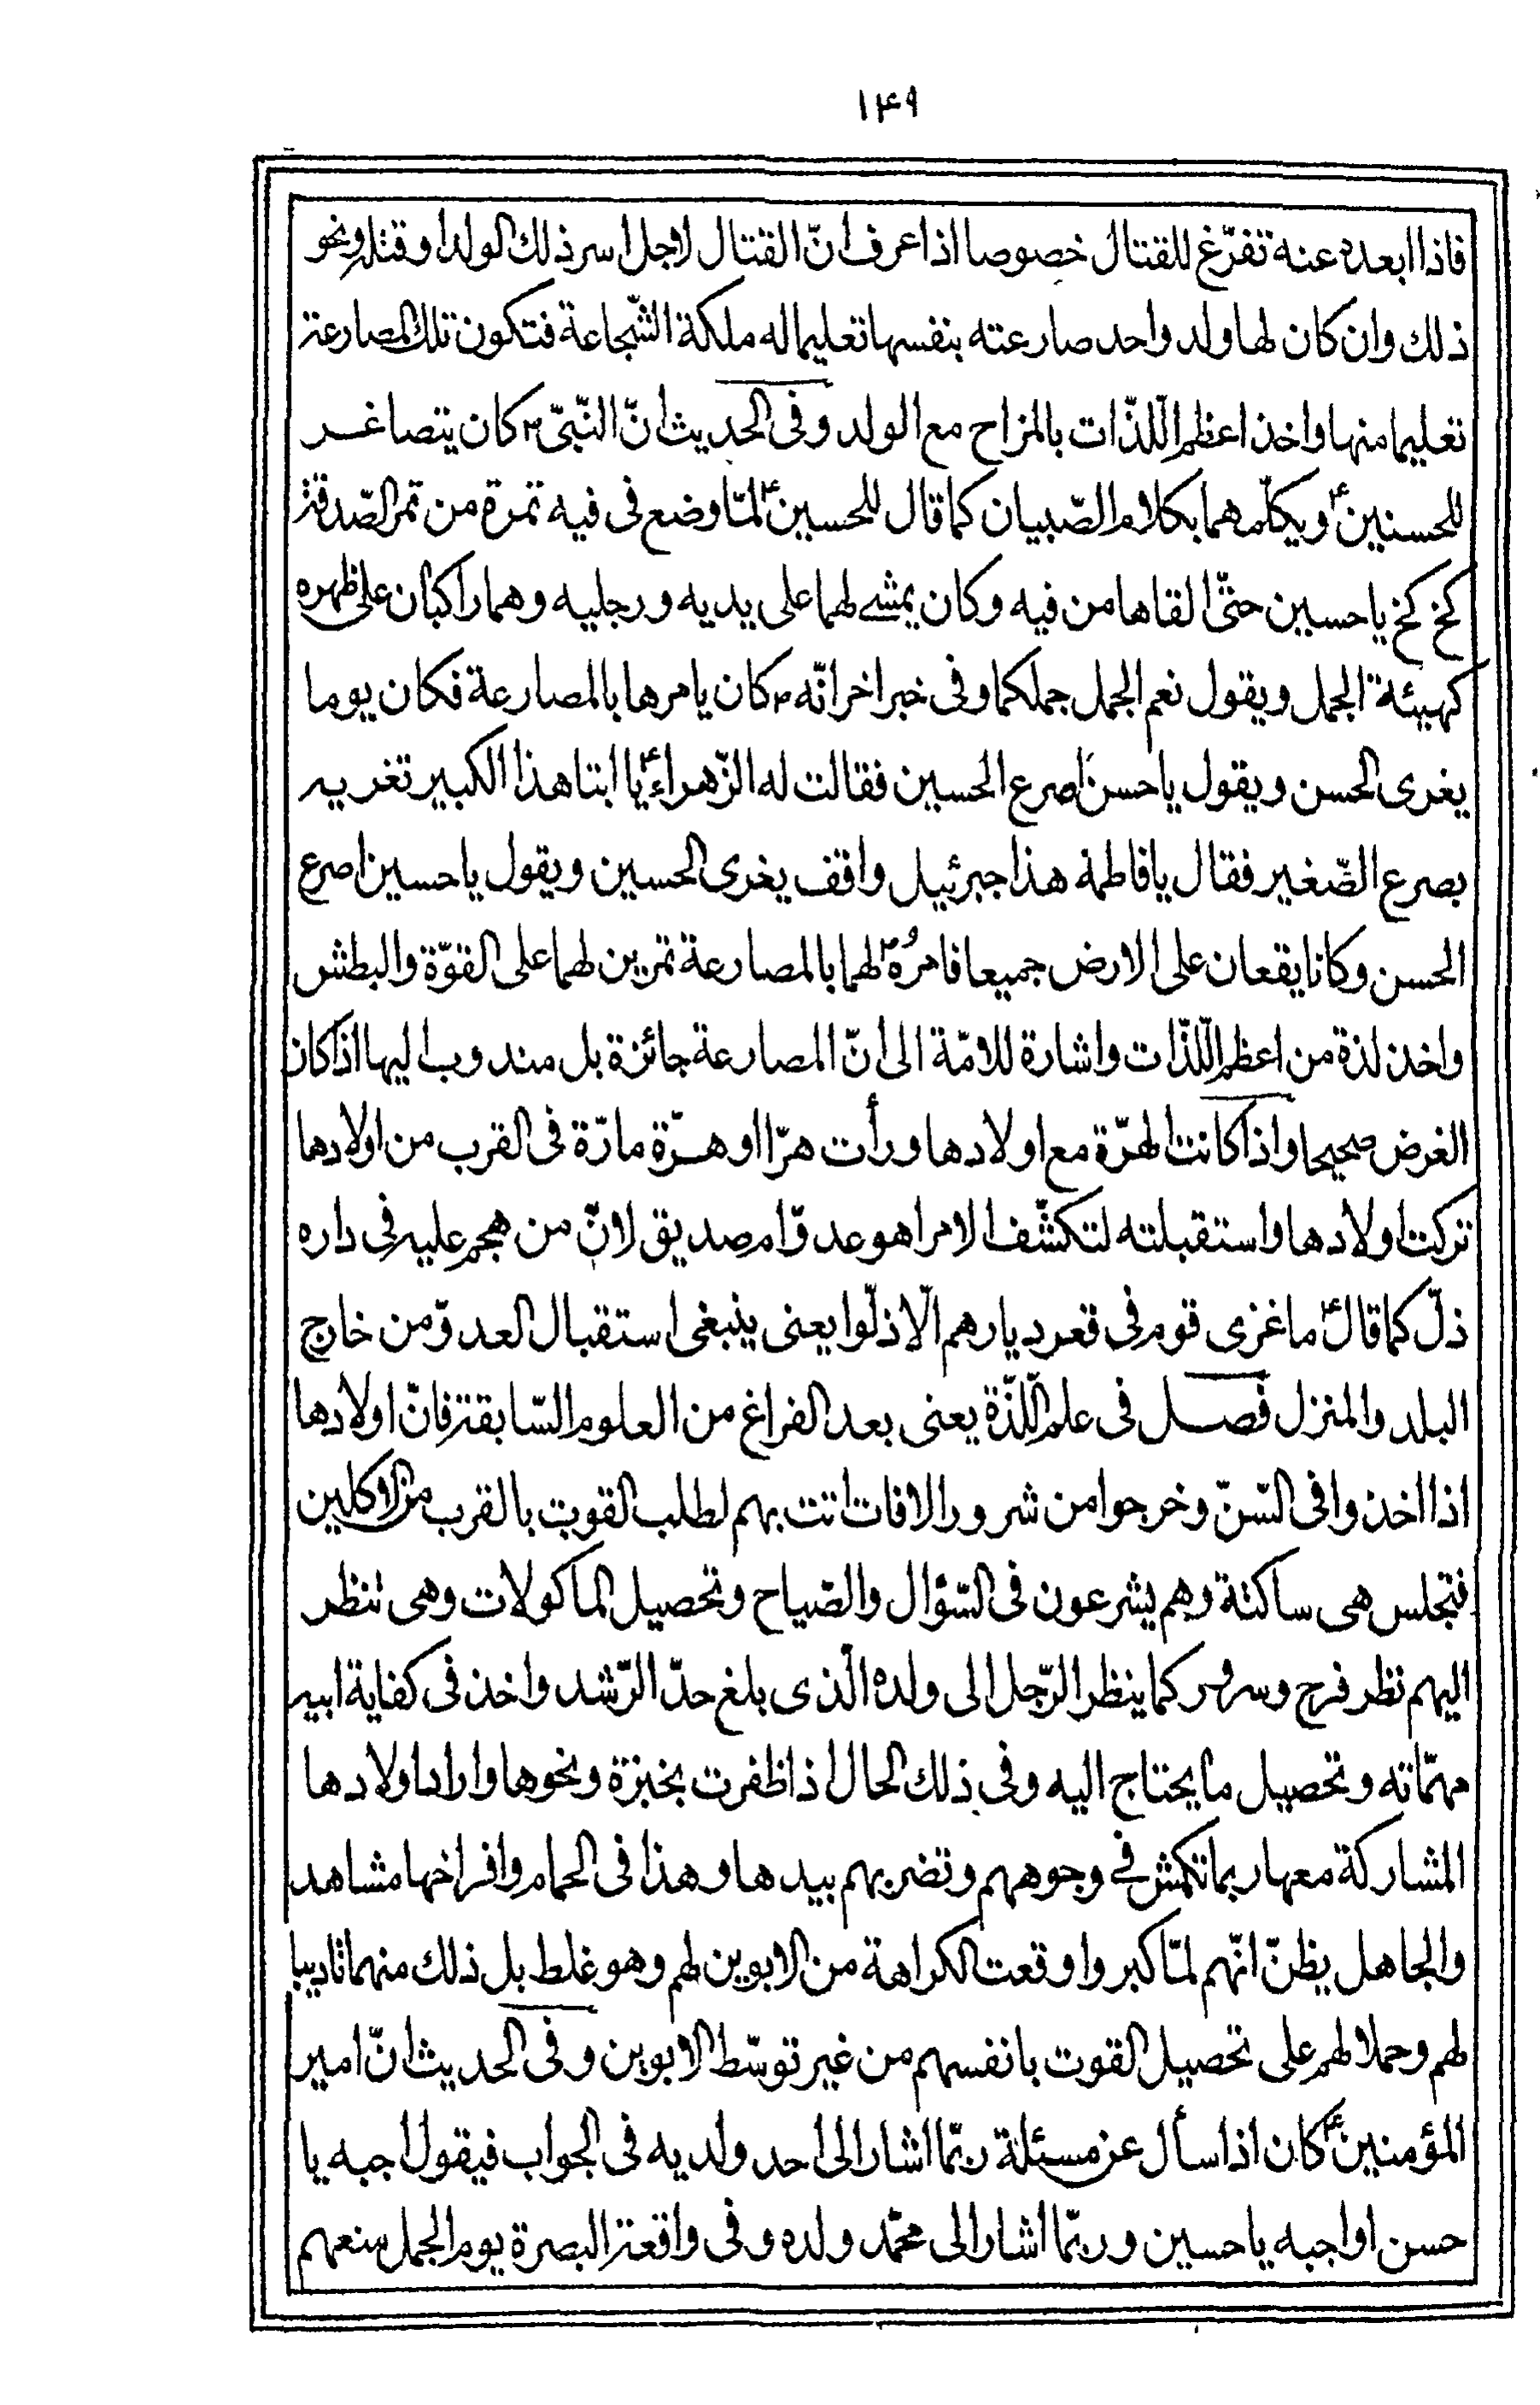 ١٤٩
فاذا ابعده عنه تفرّغ للقتال خصوصا اذا عرف انّ القتال لاجل اسر ذلك الولد او قتله ونحو
ذلك وان كان لها ولد واحد صارعته بنفسها تعليما له ملكة الشّجاعة فتكون تلك المصارعة
تعليما منها واخذ اعظم اللّذّات بالمزاح مع الولد وفى الحديث انّ النّبىّ ص كان يتصاغر
للحسنين ع ويكلّمهما بكلام الصّبيان كما قال للحسين ع لمّا وضع فى فيه تمرة من تمر الصّدقة
كخ كخ يا حسين حتّى القاها من فيه وكان يمشى لهما على يديه ورجليه وهما راكبان على ظهره
كهيئة الجمل ويقول نعم الجمل جملكما وفى خبر اخر انّه ص كان يامرها بالمصارعة فكان يوما
يغرى الحسن ويقول يا حسن اصرع الحسين فقالت له الزّهراء ع يا ابتا هذا الكبير تغريه
بصرع الصّغير فقال يا فاطمة هذا جبرئيل واقف يغرى الحسين ويقول يا حسين اصرع
الحسن وكانا يقعان على الارض جميعا فامرُه ص لهما بالمصارعة تمرين لهما على القوّة والبطش
واخذ لذة من اعظم اللّذّات واشارة للامّة الى انّ المصارعة جائزة بل مندوب اليها اذا كان
الغرض صحيحا واذا كانت الهرّة مع اولادها ورأت هرّا او هرّة مارّة فى القرب من اولادها
تركت اولادها واستقبلته لتكشّف الامر اهو عدوّ ام صديق لانّ من هجم عليه فى داره
ذلّ كما قال ع ما غزى قوم فى قعر ديارهم الّا ذلّوا يعنى ينبغى استقبال العدوّ من خارج
البلد والمنزل فصل فى علم اللّذّة يعنى بعد الفراغ من العلوم السّابقة فانّ اولادها
اذا اخذوا فى السّنّ وخرجوا من شرور الافات اتت بهم لطلب القوت بالقرب من الاكلين
فتجلس هى ساكتة وهم يشرعون فى السّؤال والصّياح وتحصيل الماكولات وهى تنظر
اليهم نظر فرح وسرور كما ينظر الرّجل الى ولده الّذى بلغ حدّ الرّشد واخذ فى كفاية ابيه
مهمّاته وتحصيل ما يحتاج اليه وفى ذلك الحال اذا ظفرت بخبزة ونحوها واراد اولادها
المشاركة معها ربما تكمش فى وجوههم وتضربهم بيدها وهذا فى الحمام وافراخها مشاهد
والجاهل يظنّ انّهم لمّا كبروا وقعت الكراهة من الابوين لهم وهو غلط بل ذلك منهما تاديبا
لهم وحملا لهم على تحصيل القوت بانفسهم من غير توسّط الابوين وفى الحديث انّ امير
المؤمنين ع كان اذا سأل عن مسئلة ربّما اشار الى احد ولديه فى الجواب فيقول اجبه يا
حسن او اجبه يا حسين وربّما اشار الى محمّد ولده وفى واقعة البصرة يوم الجمل منعهم